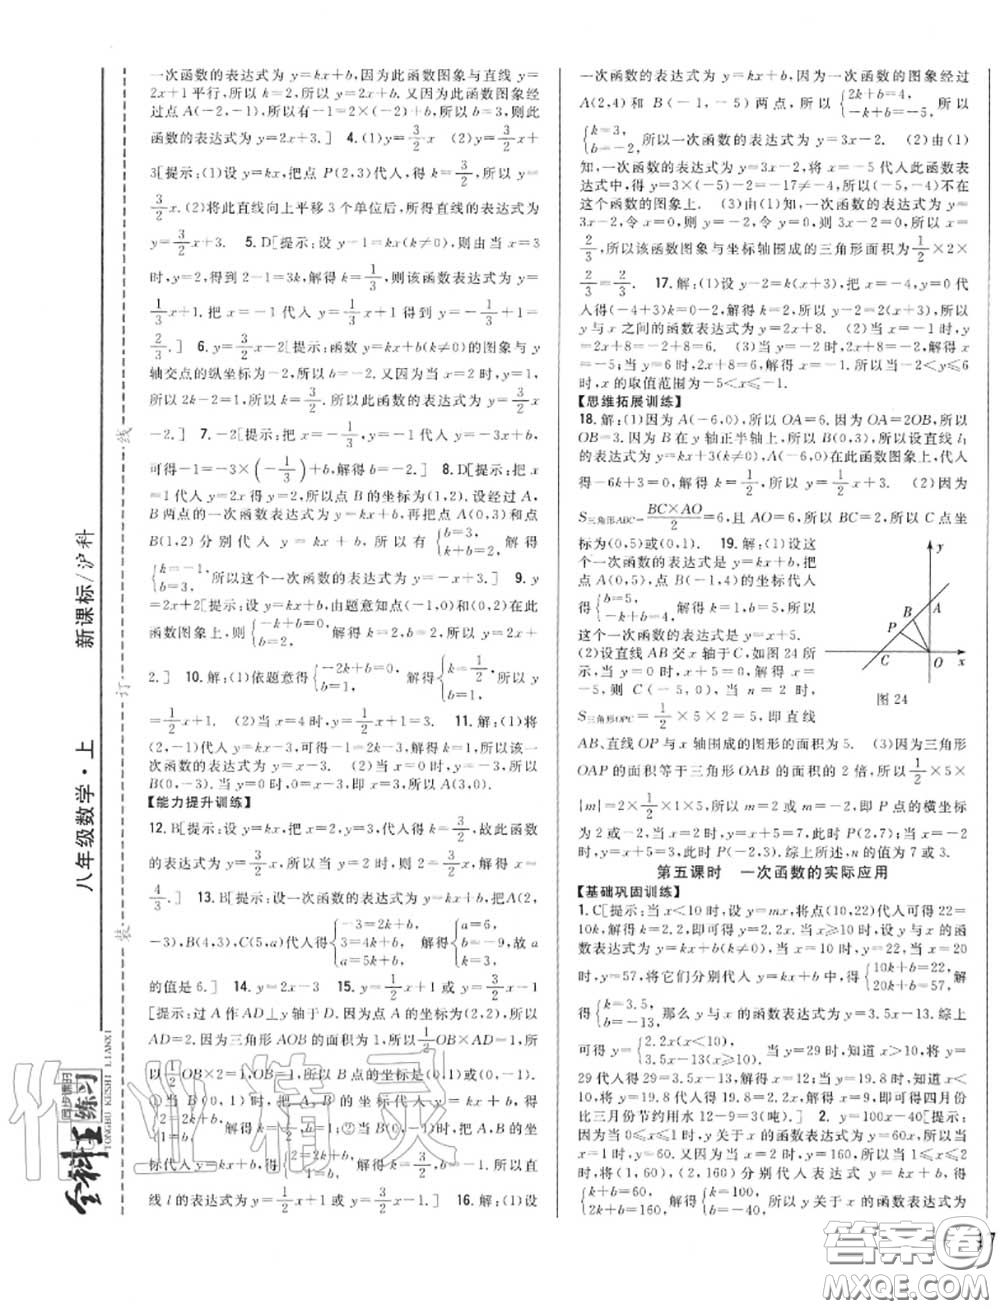 一次函数的表达式为 y=kx+b,因为此函数图象与直线 y=
2x+1 平行,所以 k=2,所以 y=2x+b. 又因为此函数图象经
过点 A(-2,-1),所以有-1=2×(-2)+b,所以 b=3,则此
函数的表达式为 y=2x+3.] 4.(1)y=3/2x (2)y=3/2x+
3[提示:(1)设 y=kx,把点 P(2,3)代人,得 k=3/2,所以 y=
3/2x.(2)将此直线向上平移 3 个单位后,所得直线的表达式为
y=3/2x+3. 5.D[提示:设 y-1=kx(k≠0),则由当 x=3
时,y=2,得到 2-1=3k,解得 k=1/3,则该函数表达式为 y=
1/3x+1. 把 x=-1/3代人 y=1/3x+1 得到 y=-1/9+1=
6.y=3/2x-2[提示:函数 y=kx+b(k≠0)的图象与 y
轴交点的纵坐标为-2,所以 b=-2. 又因为当 x=2 时,y=1,
所以 2k-2=1,所以 k=3/2,所以这个函数的表达式为 y=3/2x
-2.] 7.-2[提示:把 x=-1/3,y=-1 代人 y=-3x+b,
可得-1=-3×(-1/3)+b,解得 b=-2.] 8.D[提示:把 x
=1代人 y=2x 得 y=2,所以点 B 的坐标为(1,2). 设经过 A,
B两点的一次函数表达式为 y=kx+b,再把点 A(0,3)和点
B(1,2)分别代人 y=kx+b,所以有{b=3,k+b=2. 解得
{k=-1,b=3, 所以这个一次函数的表达式为 y=-x+3.] 9.y
=2x+2[提示:设 y=kx+b,由题意知点(-1,0)和(0,2)在此
函数图象上,则{-k+b=0,b=2,
2.] 10.解:(1)依题意得{-2k+b=0,b=1, 解得{k=1/2,b=1,所以 y=
1/2x+1. (2)当 x=4 时,y=1/2x+1=3. 11.解:(1)将
(2,-1)代人 y=kx-3,可得-1=2k-3,解得 k=1,所以一
次函数的表达式为 y=x-3. (2)当 x=0 时,y=-3,所以
B(0,-3). 当 y=0 时,0=x-3,即 x=3,所以 A(3,0).
【能力提升训练】
12.B[提示:设 y=kx,把 x=2,y=3,代人得 k=3/2,故此函数
的表达式为 y=3/2x,所以当 y=2 时,则 2=3/2x,解得 x=
4/3.] 13.解:设一次函数的表达式为 y=kx+b,把 A(2,
-3),B(4,3),C(5,a)代人得{-3=2k+b,3=4k+b,a=5k+b, 解得{k=3,b=-9,a=6. 故 a
的值是 6.] 14.y=2x-3 15.y=1/2x+1 或 y=-3/2x-1
[提示:过 A 作 AD⊥y 轴于 D. 因为点 A 的坐标为(2,2),所以
AD=2. 因为三角形 AOB 的面积为 1,所以1/2OB×AD=1,所以
1/2OB×2=1,OB=1,所以点 B 的坐标是(0,1)或(0,-1).
①当 B(0,1)时,把 A,B 的坐标代人 y=kx+b 得
当 B(0,-1)时,把 A,B 的坐
标代人 y=kx+b 得{2=2k+b,-1=b, 解得 所以直
线 l 的表达式为 y=1/2x+1 或 y=3/2x-1.] 16.解:(1)设
一次函数的表达式为 y=kx+b,因为一次函数的图象经过
A(2,4)和 B(-1,-5)两点,所以{2k+b=4,-k+b=-5, 所以
{k=3,b=-2, 所以一次函数的表达式为 y=3x-2. (2)由(1)
知,一次函数的表达式为 y=3x-2,将 x=-5代人此函数表
达式中,得 y=3×(-5)-2=-17≠-4,所以(-5,-4)不在
这个函数的图象上. (3)由(1)知,一次函数的表达式为 y=
3x-2,令 x=0,则 y=-2,令 y=0,则 3x-2=0,所以 x=
2/3,所以该函数图象与坐标轴围成的三角形面积为1/2×2×
2/3=2/3. 17.解:(1)设 y-2=k(x+3),把 x=-4,y=0代
人得(-4+3)k=0-2,解得 k=2,所以 y-2=2(x+3),所以
y 与 x 之间的函数表达式为 y=2x+8. (2)当 x=-1 时,y
=2x+8=-2+8=6. (3)当 y=-2 时,2x+8=-2,解得 x
=-5. 当 y=6 时,2x+8=6,解得 x=-1. 所以当-2<y≤6
时,x 的取值范围为-5<x≤-1.
【思维拓展训练】
18.解:(1)因为 A(-6,0),所以 OA=6. 因为 OA=2OB,所以
OB=3. 因为 B 在 y 轴正半轴上,所以 B(0,3),所以设直线 l₁
的表达式为 y=kx+3(k≠0),A(-6,0)在此函数图象上,代人
得-6k+3=0,解得 k=1/2,所以 y=1/2x+3. (2)因为
S三角形ABC=BC×AO/2=6,且 AO=6,所以 BC=2,所以 C 点坐
标为(0,5)或(0,1). 19.解:(1)设这
个一次函数的表达式是 y=kx+b,把
点 A(0,5),点 B(-1,4)的坐标代人
得{b=5,-k+b=4, 解得{k=1,b=5, 所以
这个一次函数的表达式是 y=x+5.
(2)设直线 AB 交 x 轴于 C,如图 24 所
示,当 y=0 时,x+5=0,解得 x=
-5,则 C(-5,0),当 n=2 时,
S三角形OPC=1/2×5×2=5,即直线
AB、直线 OP 与 x 轴围成的图形的面积为 5. (3)因为三角形
OAP 的面积等于三角形 OAB 的面积的 2 倍,所以1/2×5×
|m|=2×1/2×1×5,所以 m=2 或-2,即 P 点的横坐标
为 2 或-2,当 x=2 时,y=x+5=7,此时 P(2,7);当 x=-2
时,y=x+5=3,此时 P(-2,3). 综上所述,n 的值为 7 或 3.
y
A
B
P
C
O
x
图 24
第五课时 一次函数的实际应用
【基础巩固训练】
1.C[提示:当 x<10 时,设 y=mx,将点(10,22)代人可得 22=
10k,解得 k=2.2,即可得 y=2.2x,当 x≥10 时,设 y 与 x 的函
数表达式为 y=kx+b(k≠0),当 x=10 时,y=22,当 x=20
时,y=57,将它们分别代人 y=kx+b 中,得{10k+b=22,20k+b=57,
解得{k=3.5,b=-13, 那么 y 与 x 的函数表达式为 y=3.5x-13. 综上
可得 y={2.2x(x<10),3.5x-13(x≥10), 当 y=29 时,知道 x>10,将 y=29
代人得 29=3.5x-13,解得 x=12,当 y=19.8 时,知道 x<
10,将 y=19.8 代人得 19.8=2.2x,解得 x=9,即可得四月份
比三月份节约用水 12-9=3(吨).] 2.y=100x-40[提示:
因为当 0≤x≤1 时,y 关于 x 的函数表达式为 y=60x,所以当
x=1 时,y=60. 又因为当 x=2 时,y=160,所以当 1≤x≤2
时,将(1,60),(2,160)分别代人表达式 y=kx+b 得
{k+b=60,2k+b=160, 解得{k=100,b=-40, 所以 y 关于 x 的函数表达式为
八年级数学·上 新课标/沪科
装 订 线
全科王 同步课时练习
TONGBU KESHI LIANXI
作业精灵
答案圈
MXQE.COM